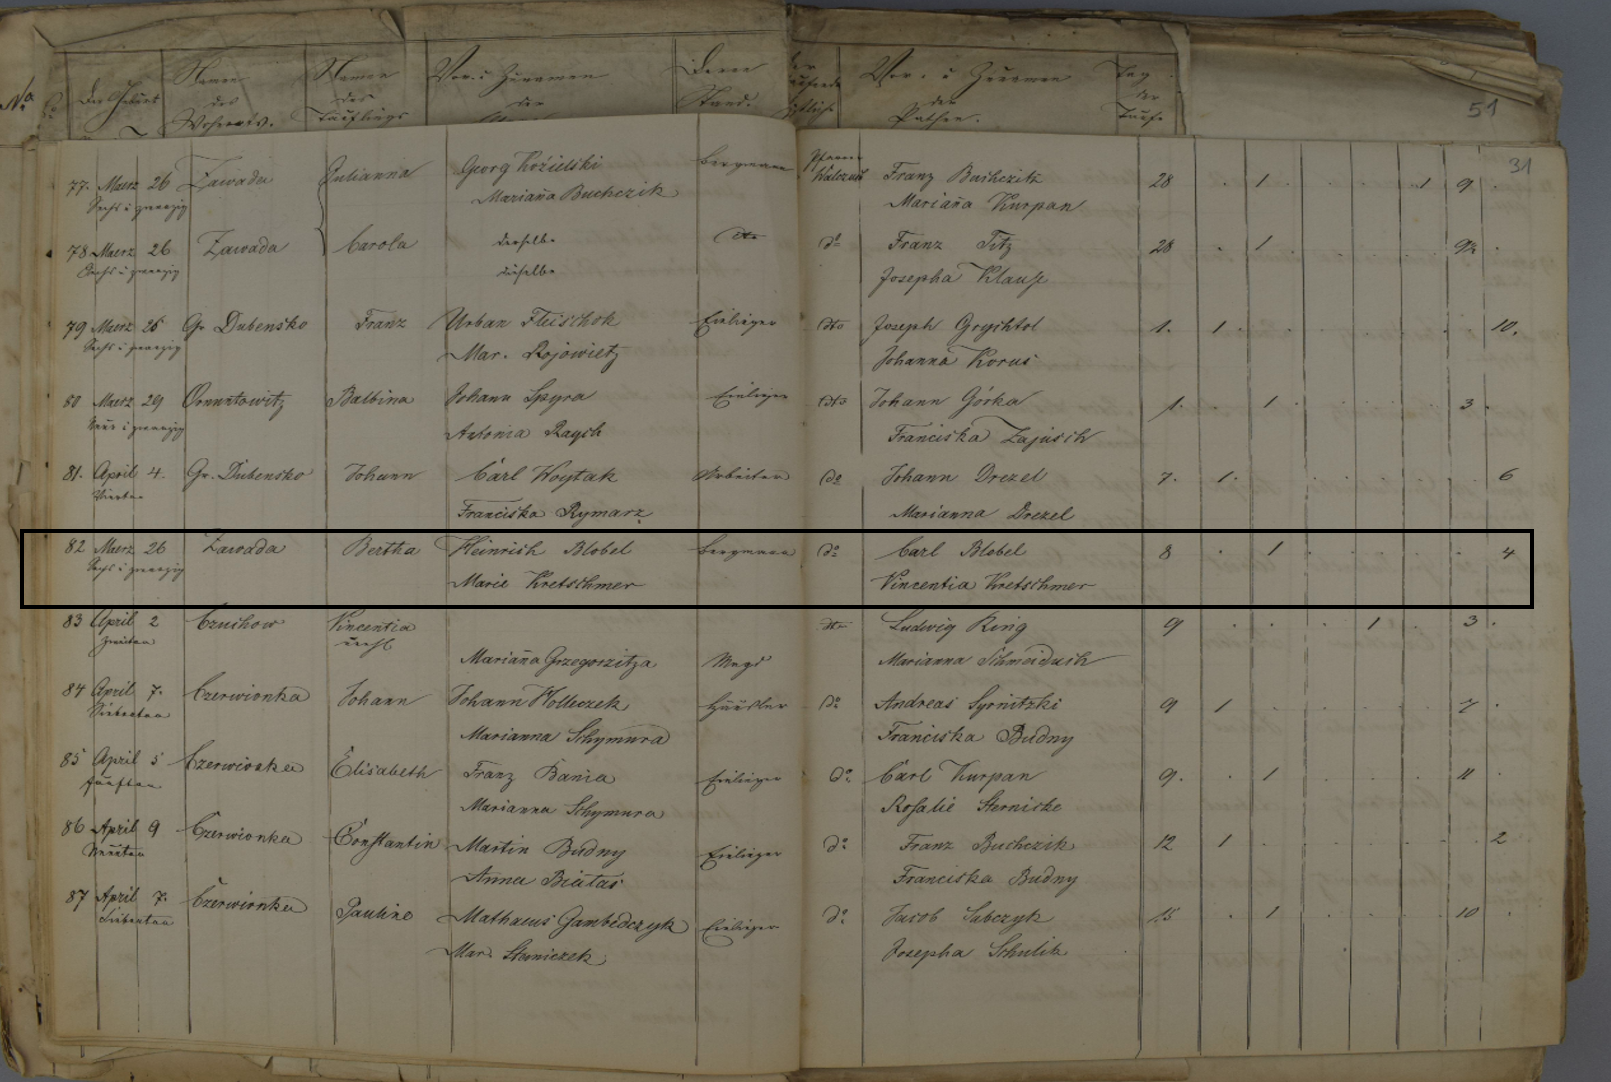 No. Der Geburt Namen des Wohnorts. Namen des Täuflings Vor- u Zunamen der Deren Stand. Vor- u Zunamen der Pathen. Tag der Taufe 51
31
77. Maerz 26 Zawada Julianna Georg Kozielski Bergmann Pfarrer Walczuch Franz Buchczik 28 . 1 . . . 1 9 .
Sechs u zwanzig Marianna Buchczik Marianna Kurpan
78 Maerz 26 Zawada Carola derselbe dto do Franz Titz 28 . 1 . . . . 9½ .
Sechs u zwanzig dieselbe Josepha Klause
79 Maerz 26 Gr Dubensko Franz Urban Fleischok Einlieger dto Joseph Grychtol 1. 1 . . . . . . 10.
Sechs u zwanzig Mar. Rojowietz Johanna Korus
80 Maerz 29 Ornontowitz Balbina Johann Spyra Einlieger dto Johann Górka 1. . 1 . . . . 3 .
Neun u zwanzig Antonia Raych Franciska Zajusch
81. April 4. Gr. Dubensko Johann Carl Woytak Arbeiter do Johann Drezel 7. 1. . . . . . . 6
Vierten Franciska Rymarz Marianna Drezel
82 Maerz 26 Zawada Bertha Heinrich Blobel Bergmann do Carl Blobel 8 . 1 . . . . . 4
Sechs u zwanzig Marie Kretschmer Vincentia Kretschmer
83 April 2 Czuchow Vincentia dto Ludwig Ring 9 . . . 1 . 3 .
Zweiten unehl Marianna Grzegorzitza Magd Marianna Schmeiduch
84 April 7. Czerwionka Johann Johann Holleczek Häusler do Andreas Syrnitzki 9 1 . . . . . 7 .
Siebenten Marianna Schymura Franciska Budny
85 April 5 Czerwionka Elisabeth Franz Bania Einlieger do Carl Kurpan 9. . 1 . . . . 11 .
Fünften Marianna Schymura Rosalie Sterniske
86 April 9 Czerwionka Constantin Martin Budny Einlieger do Franz Buchczik 12 1 . . . . . . 2
Neunten Anna Bialas Franciska Budny
87 April 7. Czerwionka Pauline Mathaeus Gambedczyk Einlieger do Jacob Sobczyk 15 . 1 . . . . 10 .
Siebenten Mar. Sterniczek Josepha Schulik